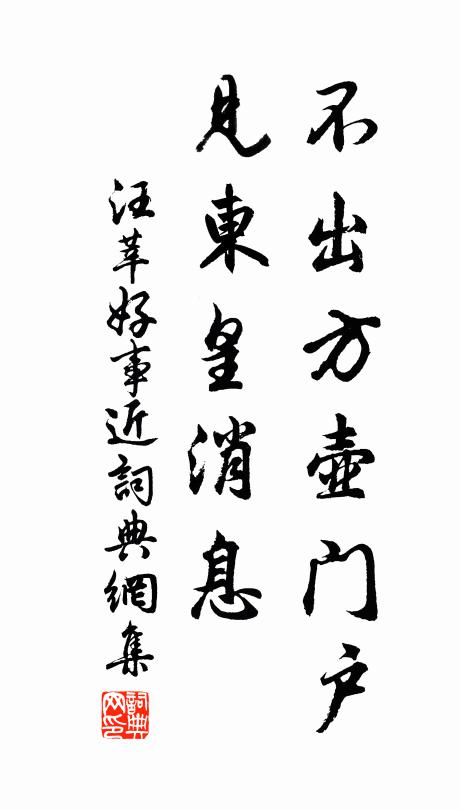 不出方壺门户
見東皇消息
汪莘好事近詞典網集
詞典
网印